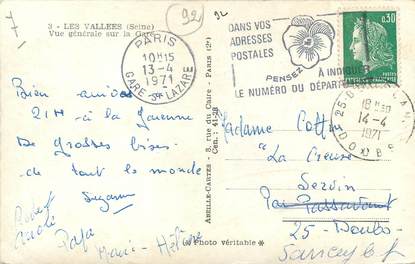 7
3 - LES VALLÉES (Seine)
Vue générale sur la Gare
92
92
PARIS
10H15
13-4
1971
GARE St LAZARE
DANS VOS
ADRESSES
POSTALES
PENSEZ
À INDIQUER
LE NUMÉRO DU DÉPARTEMENT
0,30
25-B
18H30
14-4
1971
DOUBS
Bien arrivés
21H à la Garenne
De grosses bises
de tout le monde
Suzanne
Robert
André
Papa
Marie-Hélène
ABEILLE-CARTES - 8, rue du Caire - PARIS (2e)
Cen. : 41-28
(*) Photo véritable *
Madame Cottin
"La Creuse"
Servin
Par Passavant
25 - Doubs
Sancey le G